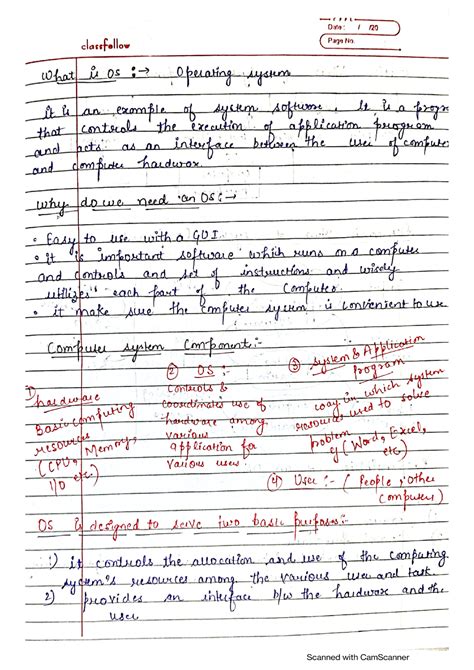 Date : / /20
Page No.
classfellow
What is OS :→ Operating system
it is an example of system software. It is a progr
that controls the execution of application program
and acts as an interface between the user of compute
and computer hardwar.
Why do we need an OS:→
• Easy to use with a GUI
• it is important software which runs on a computer
and controls and set of instructions and wisely
utilizes each part of the Computer
• it make sure the computer system is convenient to use
Computer system Component:-
1) hardware
Basic computing
resources
(CPU, Memory,
I/O etc.)
② OS :-
Controls &
coordinates use of
hardware among
various
application for
various users
③ system & Application
Program
way in which system
resources used to solve
problem
(Word, Excel,
etc)
④ User :- (People, other
Computers)
OS is designed to serve two basic purposes:-
1) it controls the allocation and use of the computing
system's resources among the various user and task
2) provides an interface b/w the hardware and the
user
Scanned with CamScanner